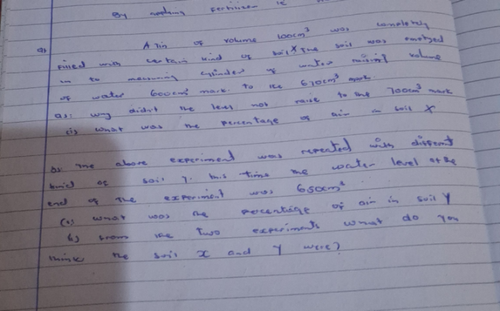 By adding fertiliser is
a) A tin of volume 100cm³ was completely
filled with certain kind of soil X The soil was emptied
in to measuring cylinder of water raising volume
of water 600cm³ mark to the 670cm³ mark
a): why didn't the level not raise to the 700cm³ mark
(i) what was the percentage of air in soil X
b) The above experiment was repeated with different
kind of soil y. this time the water level at the
end of the experiment was 650cm³
(a) what was the percentage of air in soil Y
b) from the two experiments what do you
think the soil X and Y were)